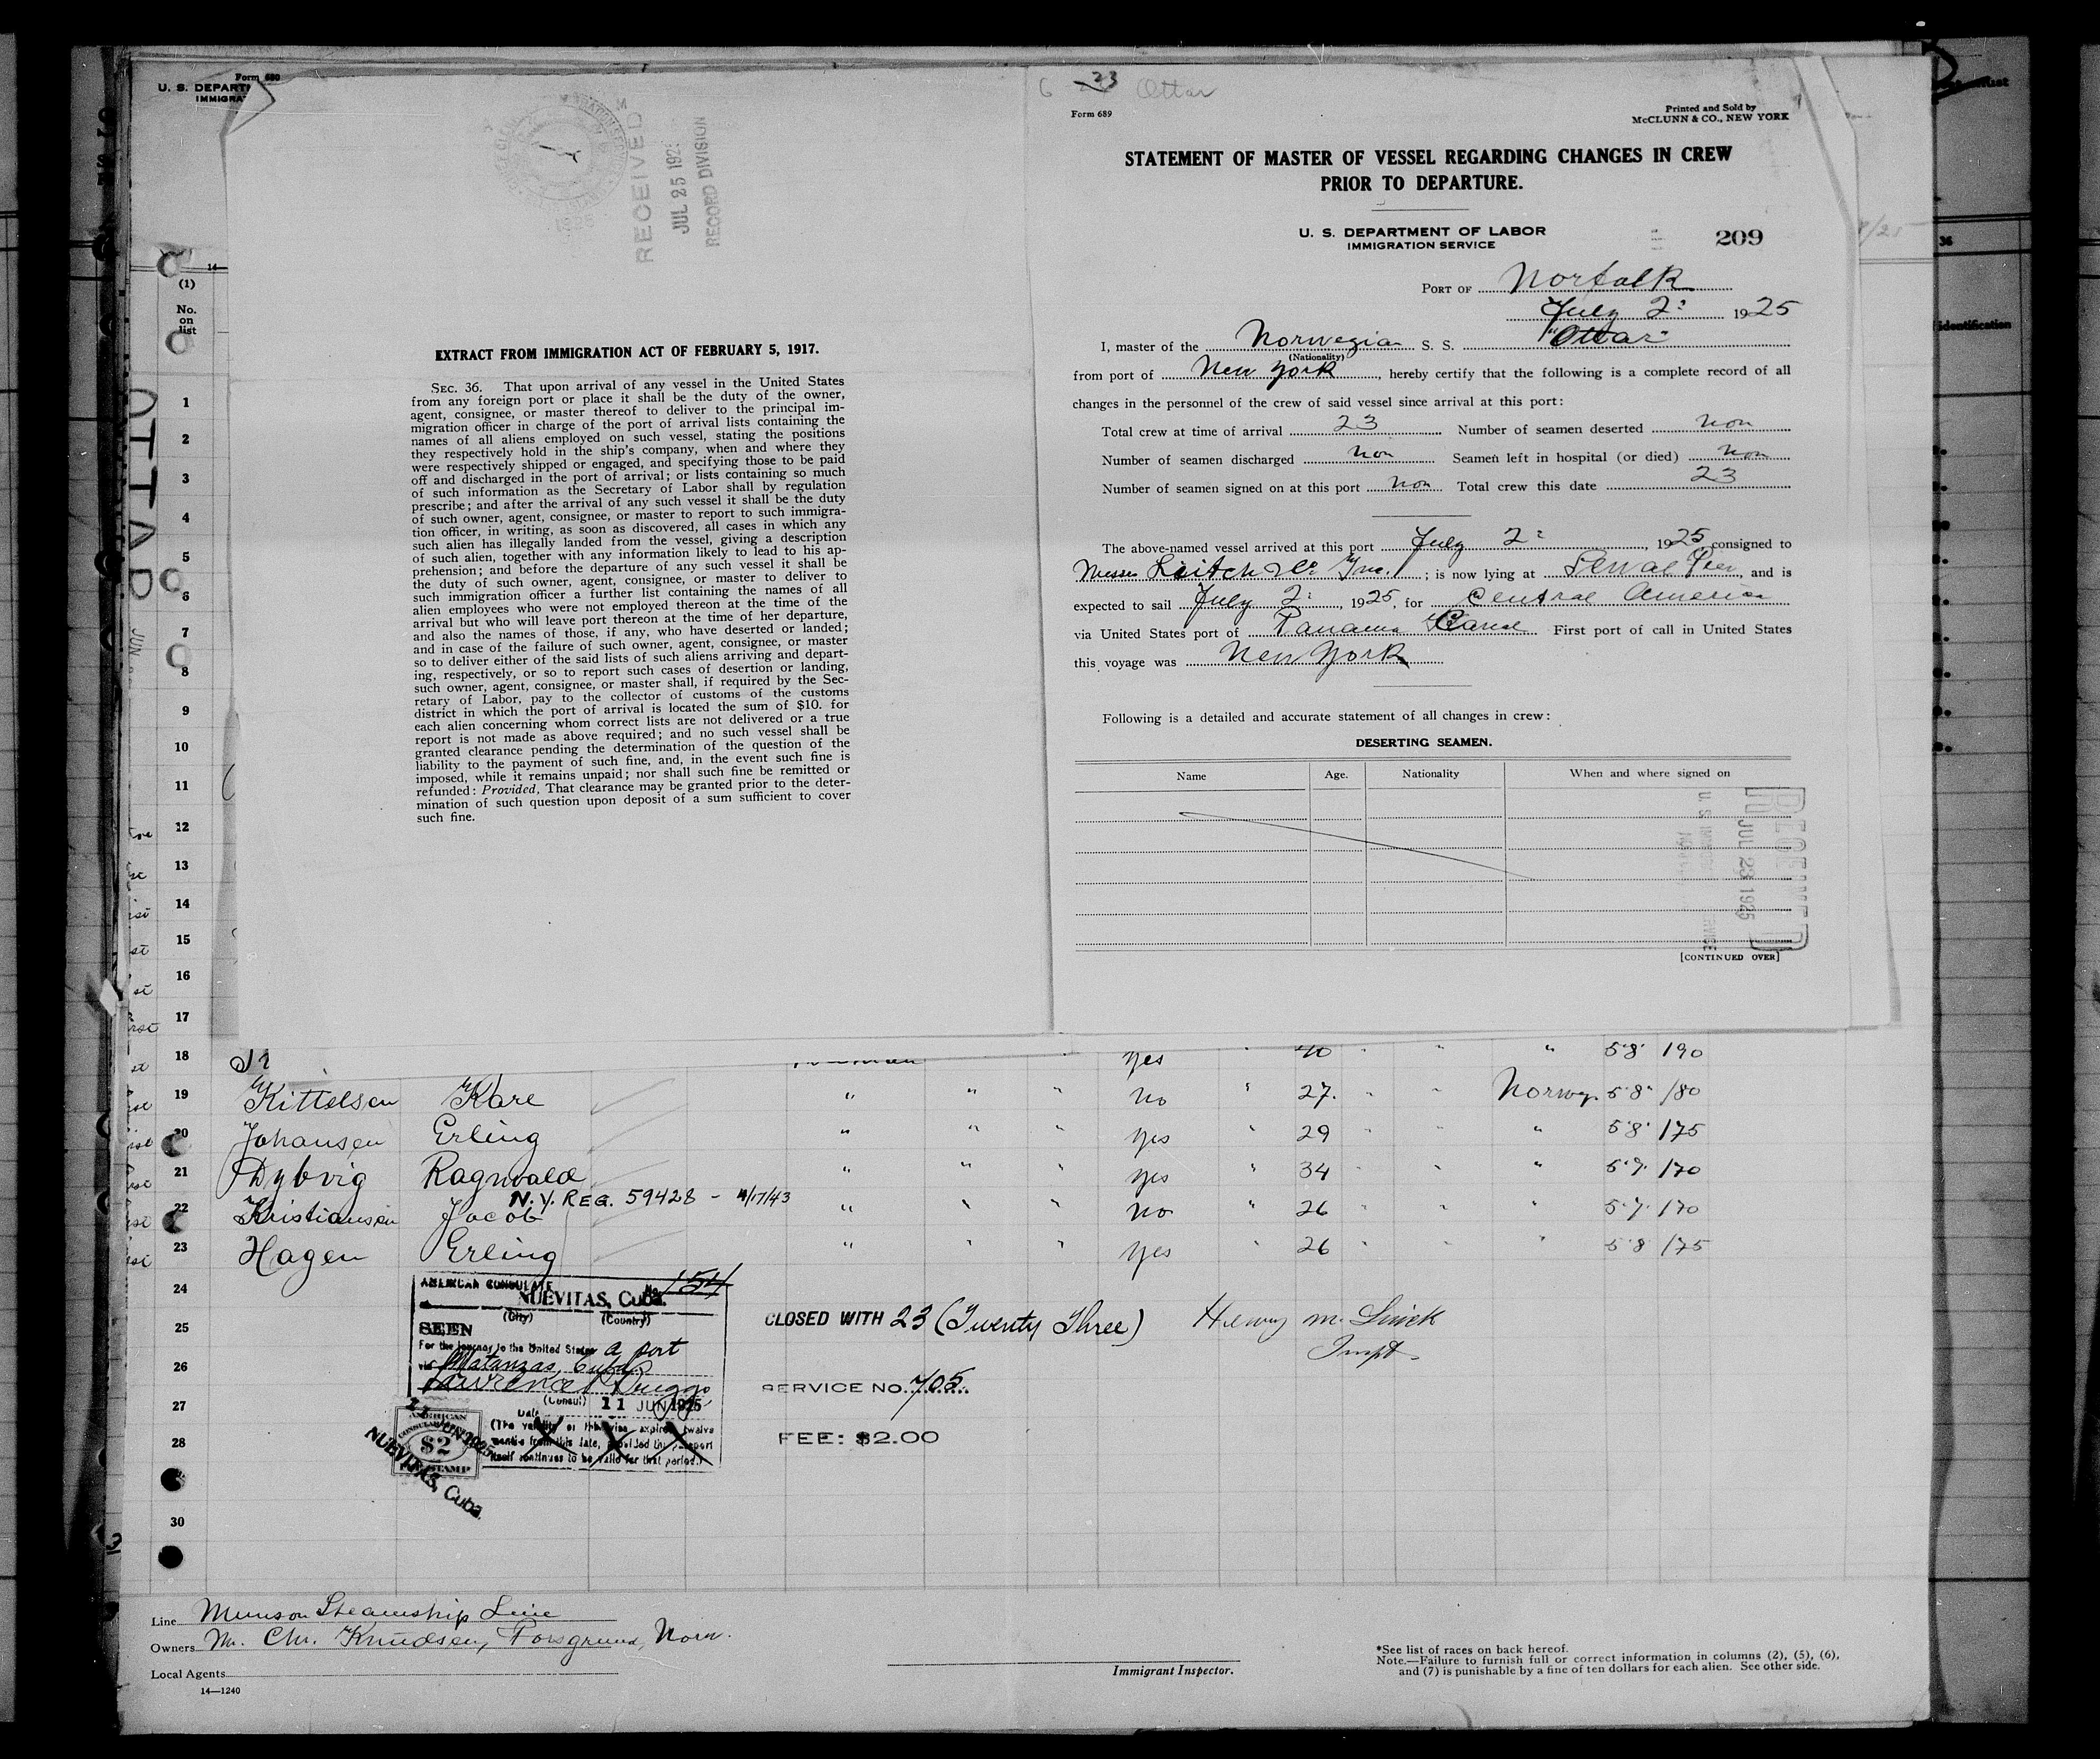 Form 680
U. S. DEPARTM
IMMIGRA
14—
(1)
No.
on
list
OTTAR
JUN
RECEIVED
JUL 25 192
RECORD DIVISION
EXTRACT FROM IMMIGRATION ACT OF FEBRUARY 5, 1917.
SEC. 36. That upon arrival of any vessel in the United States
from any foreign port or place it shall be the duty of the owner,
agent, consignee, or master thereof to deliver to the principal im-
migration officer in charge of the port of arrival lists containing the
names of all aliens employed on such vessel, stating the positions
they respectively hold in the ship's company, when and where they
were respectively shipped or engaged, and specifying those to be paid
off and discharged in the port of arrival; or lists containing so much
of such information as the Secretary of Labor shall by regulation
prescribe; and after the arrival of any such vessel it shall be the duty
of such owner, agent, consignee, or master to report to such immigra-
tion officer, in writing, as soon as discovered, all cases in which any
such alien has illegally landed from the vessel, giving a description
of such alien, together with any information likely to lead to his ap-
prehension; and before the departure of any such vessel it shall be
the duty of such owner, agent, consignee, or master to deliver to
such immigration officer a further list containing the names of all
alien employees who were not employed thereon at the time of the
arrival but who will leave port thereon at the time of her departure,
and also the names of those, if any, who have deserted or landed;
and in case of the failure of such owner, agent, consignee, or master
so to deliver either of the said lists of such aliens arriving and depart-
ing, respectively, or so to report such cases of desertion or landing,
such owner, agent, consignee, or master shall, if required by the Sec-
retary of Labor, pay to the collector of customs of the customs
district in which the port of arrival is located the sum of $10. for
each alien concerning whom correct lists are not delivered or a true
report is not made as above required; and no such vessel shall be
granted clearance pending the determination of the question of the
liability to the payment of such fine, and, in the event such fine is
imposed, while it remains unpaid; nor shall such fine be remitted or
refunded: Provided, That clearance may be granted prior to the deter-
mination of such question upon deposit of a sum sufficient to cover
such fine.
23 Ottar
Form 689
Printed and Sold by
McCLUNN & CO., NEW YORK
STATEMENT OF MASTER OF VESSEL REGARDING CHANGES IN CREW
PRIOR TO DEPARTURE.
U. S. DEPARTMENT OF LABOR
IMMIGRATION SERVICE
209
PORT OF Norfolk
July 2: 1925
I, master of the Norwegian S. S. "Ottar"
(Nationality)
from port of New York, hereby certify that the following is a complete record of all
changes in the personnel of the crew of said vessel since arrival at this port:
Total crew at time of arrival 23 Number of seamen deserted non
Number of seamen discharged non Seamen left in hospital (or died) non
Number of seamen signed on at this port non Total crew this date 23
The above-named vessel arrived at this port July 2: , 1925, consigned to
Messrs Leitch & Co Inc. ; is now lying at Sewal Pier, and is
expected to sail July 2: , 1925, for Central America
via United States port of Panama Canal First port of call in United States
this voyage was New York
Following is a detailed and accurate statement of all changes in crew:
DESERTING SEAMEN.
Name Age. Nationality When and where signed on
RECEIVED
JUL 23 1925
[CONTINUED OVER]
identification
36
1
2
3
4
5
6
7
8
9
10
11
12
13
14
15
16
17
18 yes " 40 " " " 5'8" 190
19 Kittelsen Kare " " " no " 27. " " Norwy. 5'8" 180
20 Johansen Erling " " " yes " 29 " " " 5'8" 175
21 Dybvig Ragnvald " " " yes " 34 " " " 5'7" 170
N.Y. REG. 59428 - 4/17/43
22 Kristiansen Jacob " " " no " 26 " " " 5'7" 170
23 Hagen Erling " " " yes " 26 " " " 5'8 175
24
25
26
27
28
30
AMERICAN CONSULATE No. 154
NUEVITAS, Cuba.
(City) (Country)
SEEN
For the journey to the United States a port
via Matanzas, Cuba
Lawrence P. Briggs
(Consul)
Date 11 JUN 1925
(The validity of this visa expires twelve
months from this date, provided the passport
itself continues to be valid for that period.)
AMERICAN
CONSULAR
$2
FEE STAMP
NUEVITAS, Cuba.
CLOSED WITH 23 (Twenty Three) Henry M. Smick
Inspt.
SERVICE NO. 705
FEE: $2.00
Line Munson Steamship Line
Owners Mr. Chr. Knudsen, Porsgrund, Norw.
Local Agents
14—1240
Immigrant Inspector.
*See list of races on back hereof.
Note.—Failure to furnish full or correct information in columns (2), (5), (6),
and (7) is punishable by a fine of ten dollars for each alien. See other side.